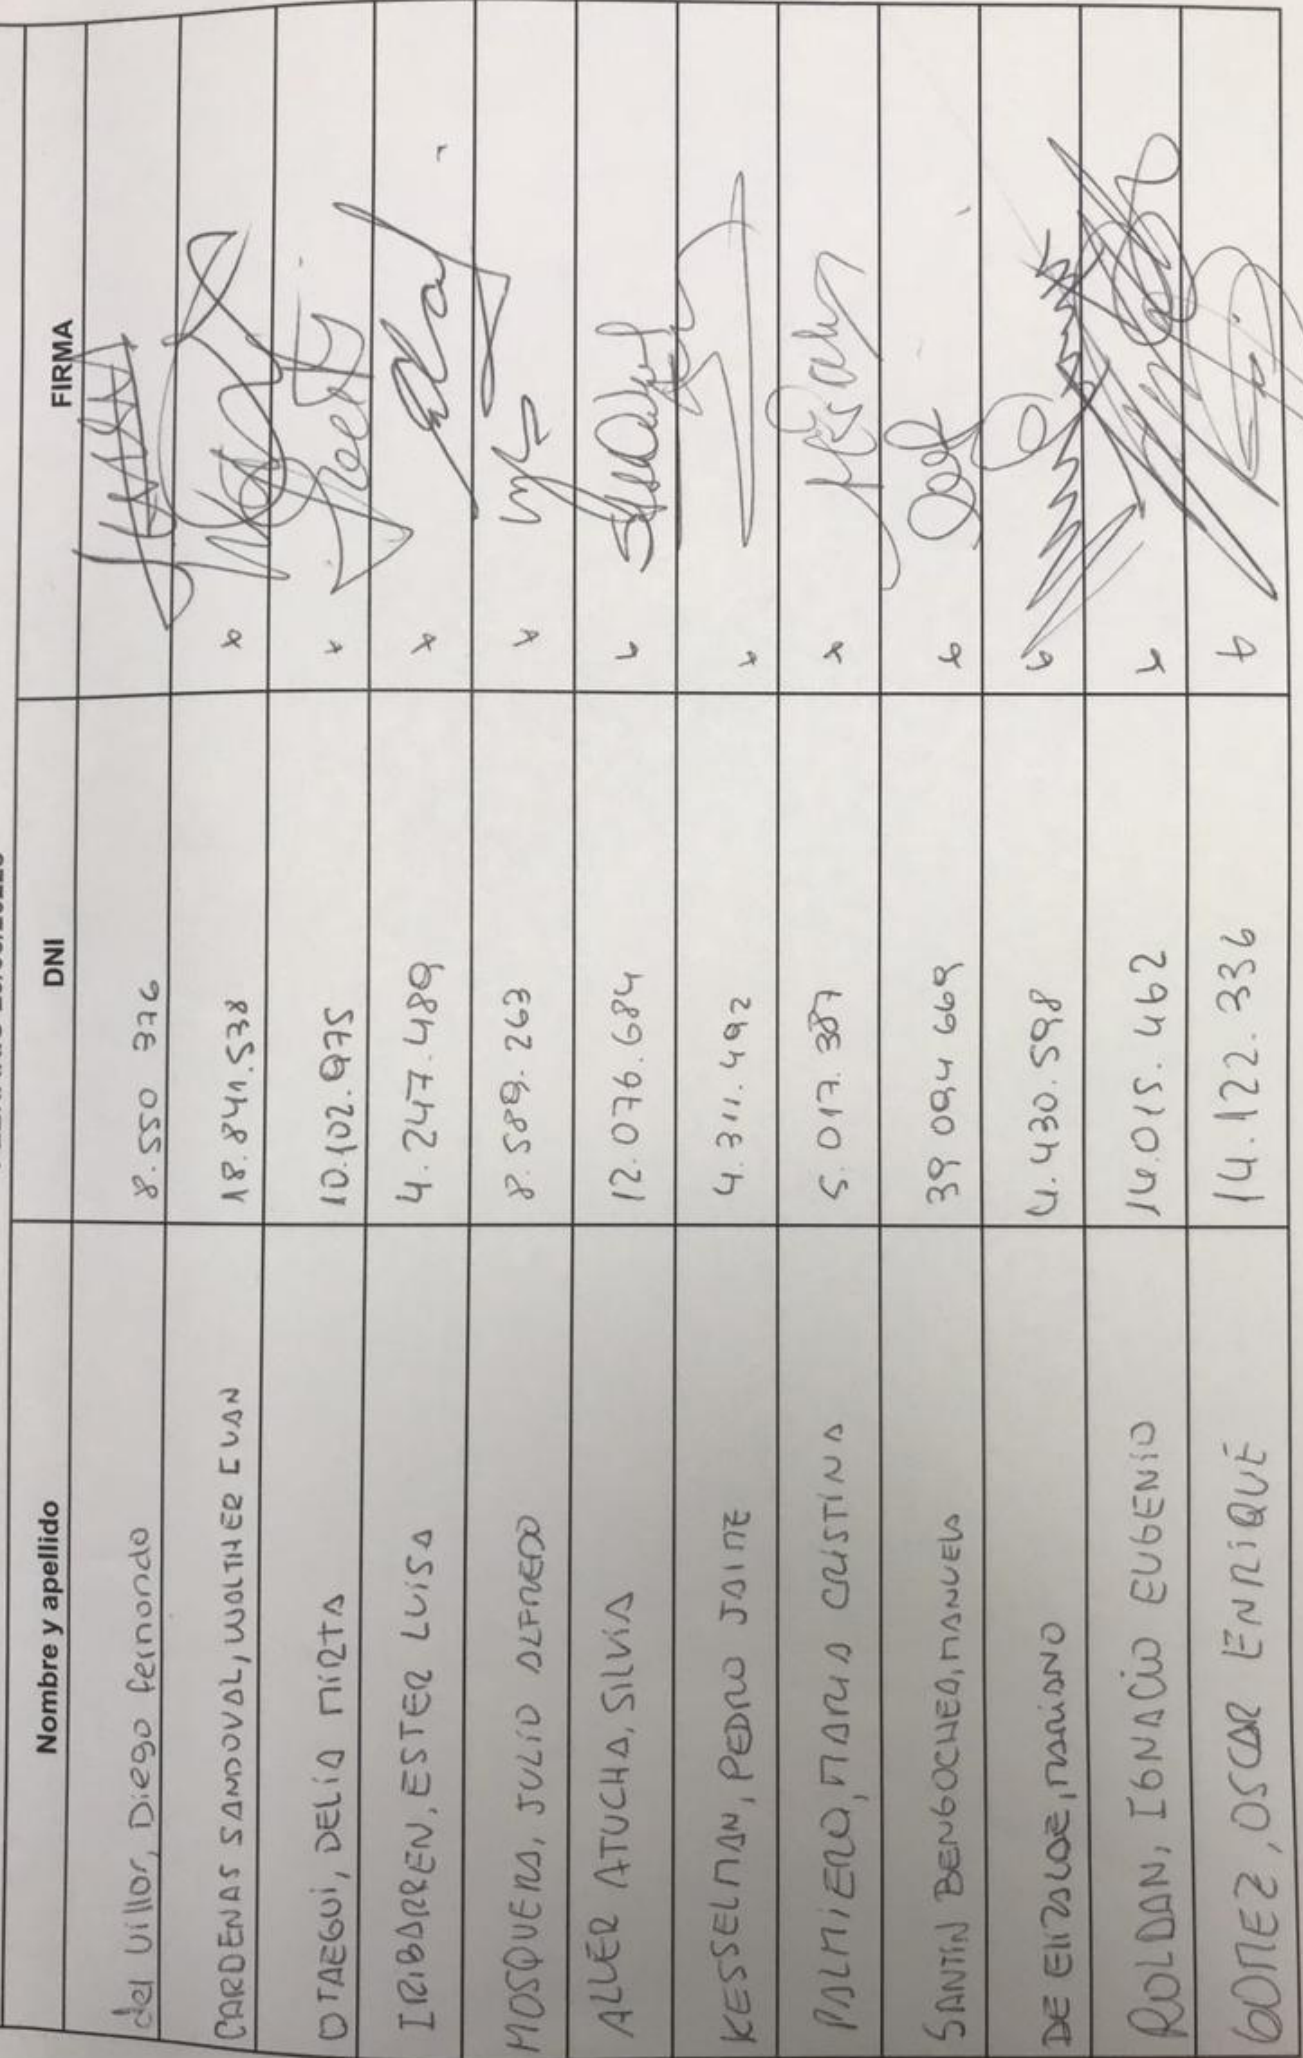 Nombre y apellido DNI FIRMA
del Villar, Diego Fernando 8.550 376
CARDENAS SANDOVAL, WALTHER IVAN 18.841.538
OTAEGUI, DELIA MIRTA 10.102.975
IRIBARREN, ESTER LUISA 4.247.489
MOSQUERA, JULIO ALFREDO 8.589.263
ALLER ATUCHA, SILVIA 12.076.684
KESSELMAN, PEDRO JAIME 4.311.492
PALMIERO, MARIA CRISTINA 5.017.387
SANTIN BENGOCHEA, MANUELA 39 094 669
DE ELIZALDE, MARIANO 4.430.598
ROLDAN, IGNACIO EUGENIO 14.015.462
GOMEZ, OSCAR ENRIQUE 14.122.336